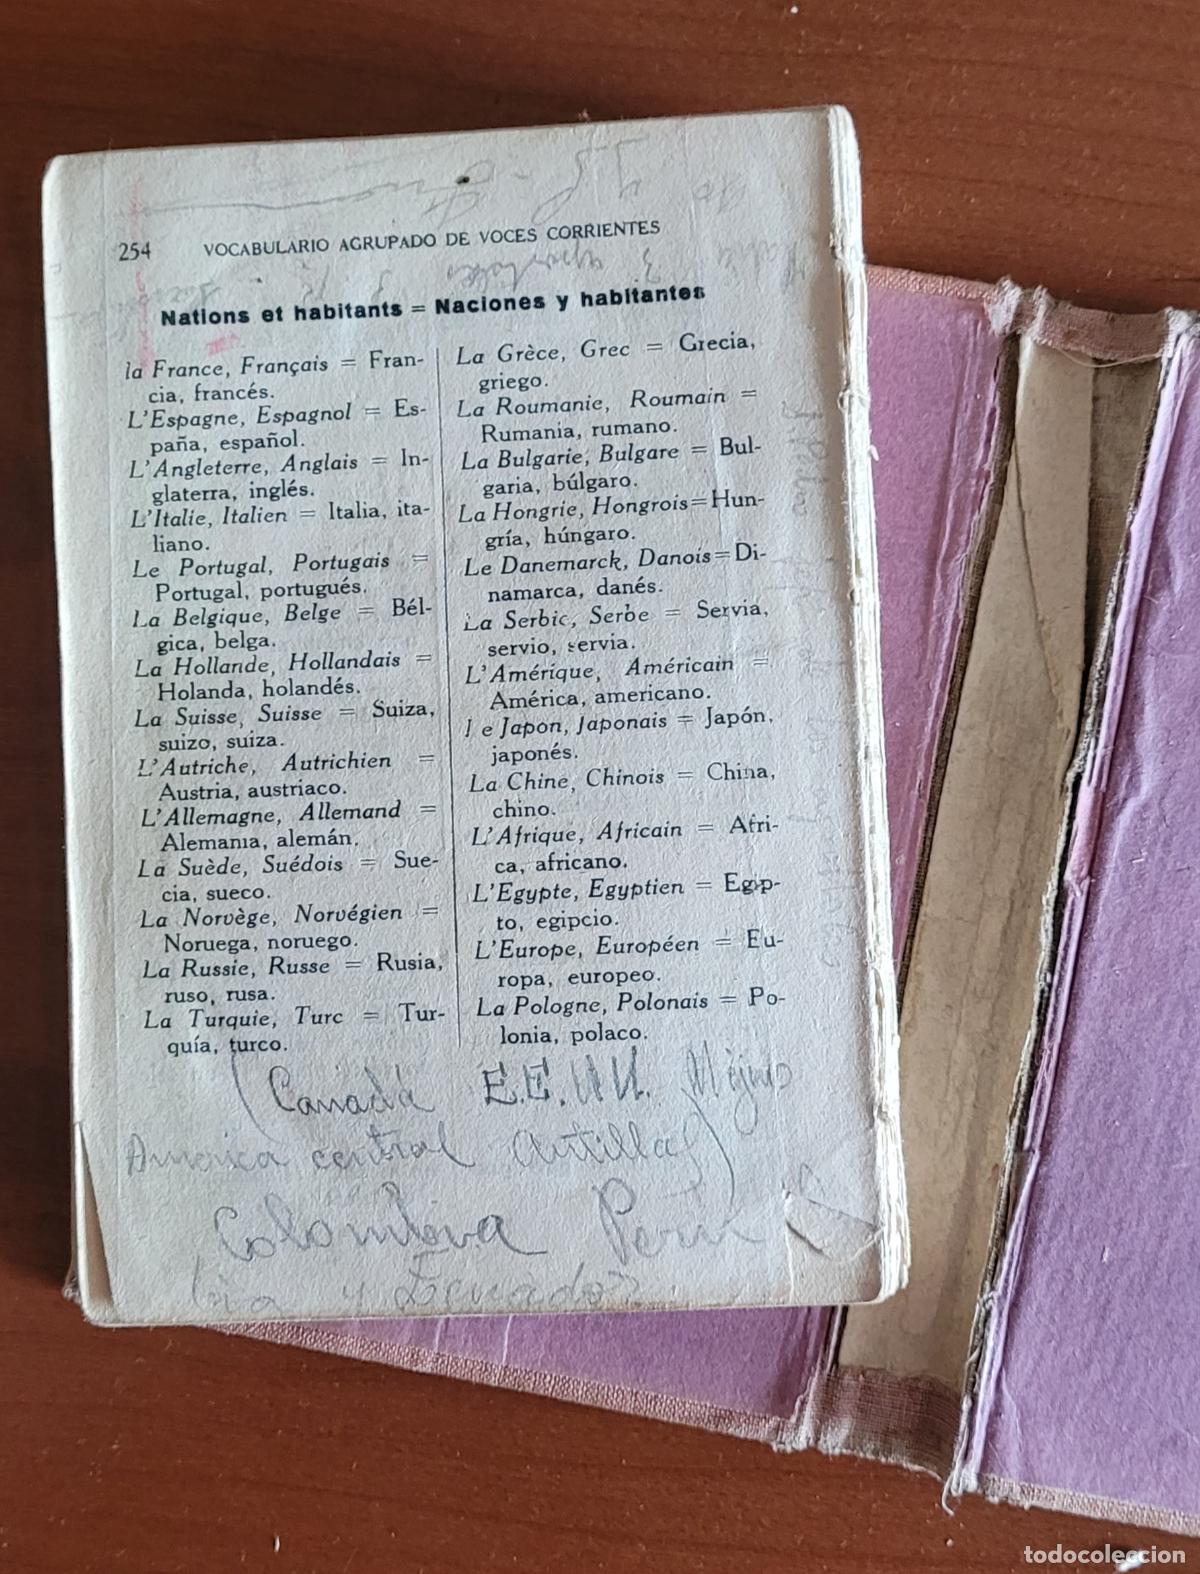 254 VOCABULARIO AGRUPADO DE VOCES CORRIENTES
Nations et habitants = Naciones y habitantes
la France, Français = Fran-
cia, francés.
L'Espagne, Espagnol = Es-
paña, español.
L'Angleterre, Anglais = In-
glaterra, inglés.
L'Italie, Italien = Italia, ita-
liano.
Le Portugal, Portugais =
Portugal, portugués.
La Belgique, Belge = Bél-
gica, belga.
La Hollande, Hollandais =
Holanda, holandés.
La Suisse, Suisse = Suiza,
suizo, suiza.
L'Autriche, Autrichien =
Austria, austriaco.
L'Allemagne, Allemand =
Alemania, alemán.
La Suède, Suédois = Sue-
cia, sueco.
La Norvège, Norvégien =
Noruega, noruego.
La Russie, Russe = Rusia,
ruso, rusa.
La Turquie, Turc = Tur-
quía, turco.
La Grèce, Grec = Grecia,
griego.
La Roumanie, Roumain =
Rumania, rumano.
La Bulgarie, Bulgare = Bul-
garia, búlgaro.
La Hongrie, Hongrois=Hun-
gría, húngaro.
Le Danemarck, Danois=Di-
namarca, danés.
La Serbic, Serbe = Servia,
servio, servia.
L'Amérique, Américain =
América, americano.
Le Japon, Japonais = Japón,
japonés.
La Chine, Chinois = China,
chino.
L'Afrique, Africain = Afri-
ca, africano.
L'Egypte, Egyptien = Egip-
to, egipcio.
L'Europe, Européen = Eu-
ropa, europeo.
La Pologne, Polonais = Po-
lonia, polaco.
(Canadá E.E.UU. Méjico
America central Antillas)
Colombia Perú
y Ecuador
todocoleccion